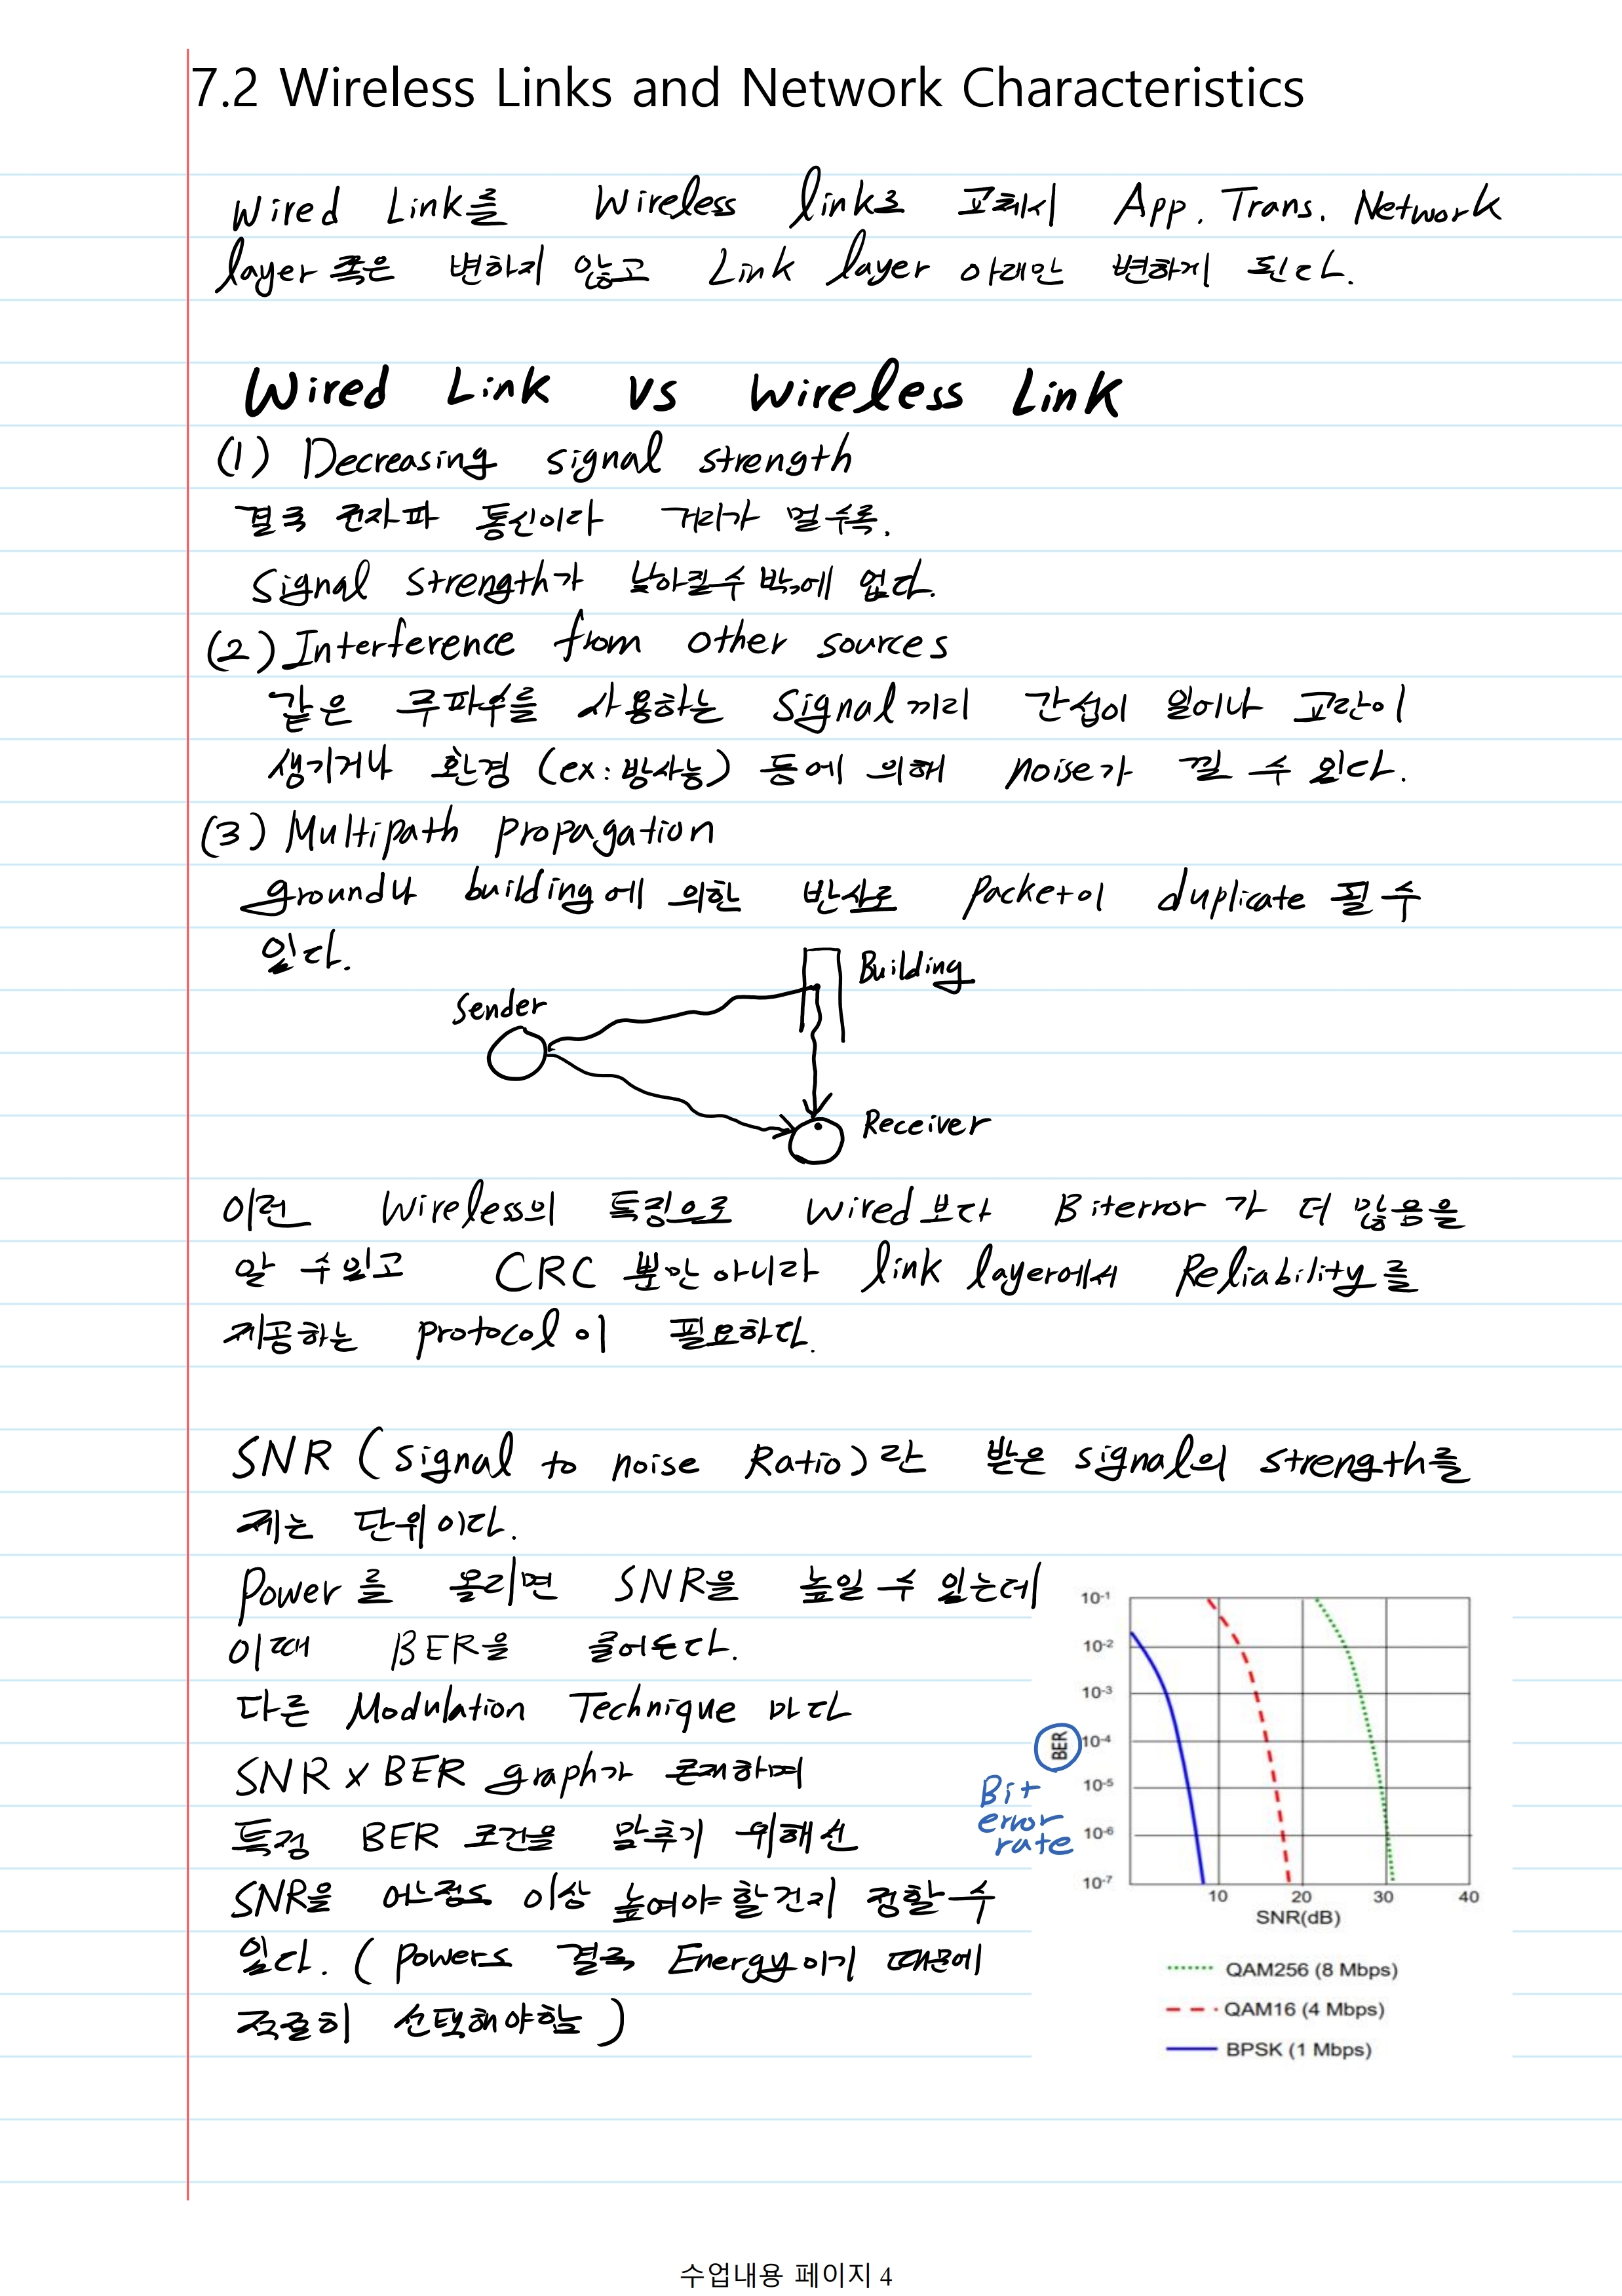 7.2 Wireless Links and Network Characteristics
Wired Link를 Wireless link로 교체시 App. Trans. Network
layer 쪽은 변하지 않고 Link layer 아래만 변하게 된다.
Wired Link vs Wireless Link
(1) Decreasing signal strength
결국 전자파 통신이다 거리가 멀수록.
Signal strength가 낮아질수 밖에 없다.
(2) Interference from other sources
같은 주파수를 사용하는 Signal끼리 간섭이 일어나 교란이
생기거나 환경 (ex: 방사능) 등에 의해 noise가 낄 수 있다.
(3) Multipath propagation
ground나 building에 의한 반사로 packet이 duplicate 될 수
있다.
Building
Sender
Receiver
이런 Wireless의 특징으로 wired보다 Biterror가 더 많음을
알 수 있고 CRC 뿐만 아니라 link layer에서 Reliability를
제공하는 protocol이 필요하다.
SNR (signal to noise Ratio)란 받은 signal의 strength를
재는 단위이다.
Power를 올리면 SNR을 높일 수 있는데
이때 BER을 줄어든다.
다른 Modulation Technique 마다
SNR x BER graph가 존재하며
특정 BER 조건을 맞추기 위해선
SNR을 어느정도 이상 높여야 할건지 정할 수
있다. (power도 결국 Energy이기 때문에
적절히 선택해야함)
10-1
10-2
10-3
10-4
10-5
10-6
10-7
BER
Bit
error
rate
10 20 30 40
SNR(dB)
QAM256 (8 Mbps)
QAM16 (4 Mbps)
BPSK (1 Mbps)
수업내용 페이지 4